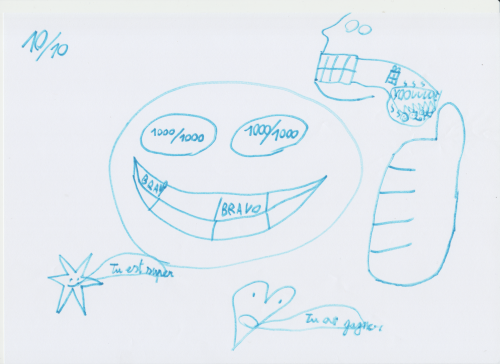 10/10
1000/1000
1000/1000
BRAVO
BRAVO
Tu est super
Tu as gagner